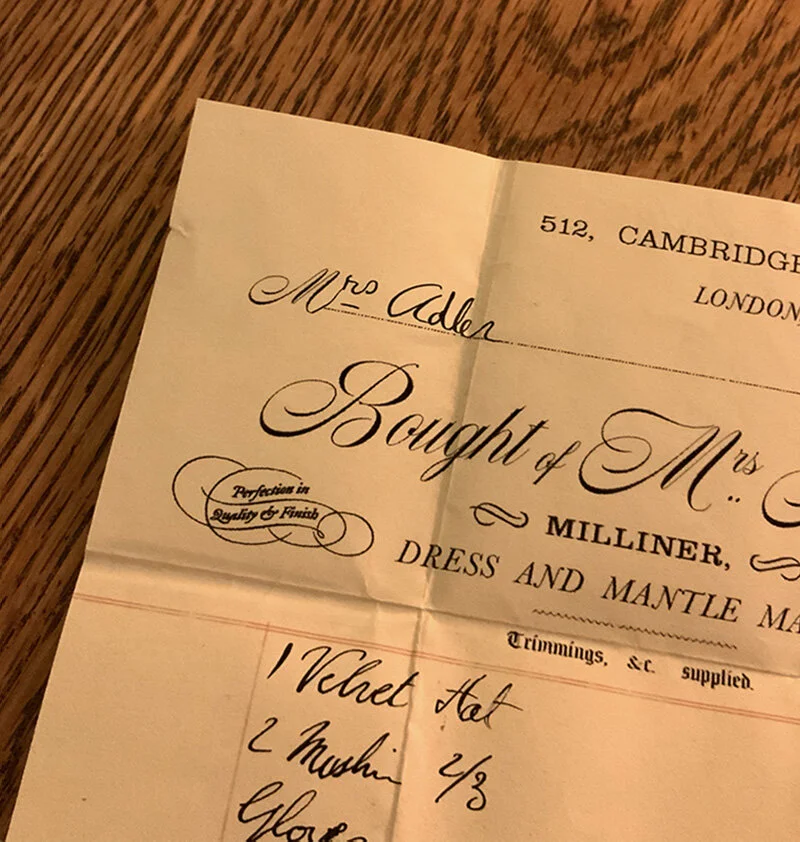 512, CAMBRIDGE
LONDON,
Mrs Adler
Bought of Mrs
Perfection in
Quality & Finish
MILLINER,
DRESS AND MANTLE MA
Trimmings, &c. supplied.
1 Velvet Hat
2 Muslin 2/3
Gloves